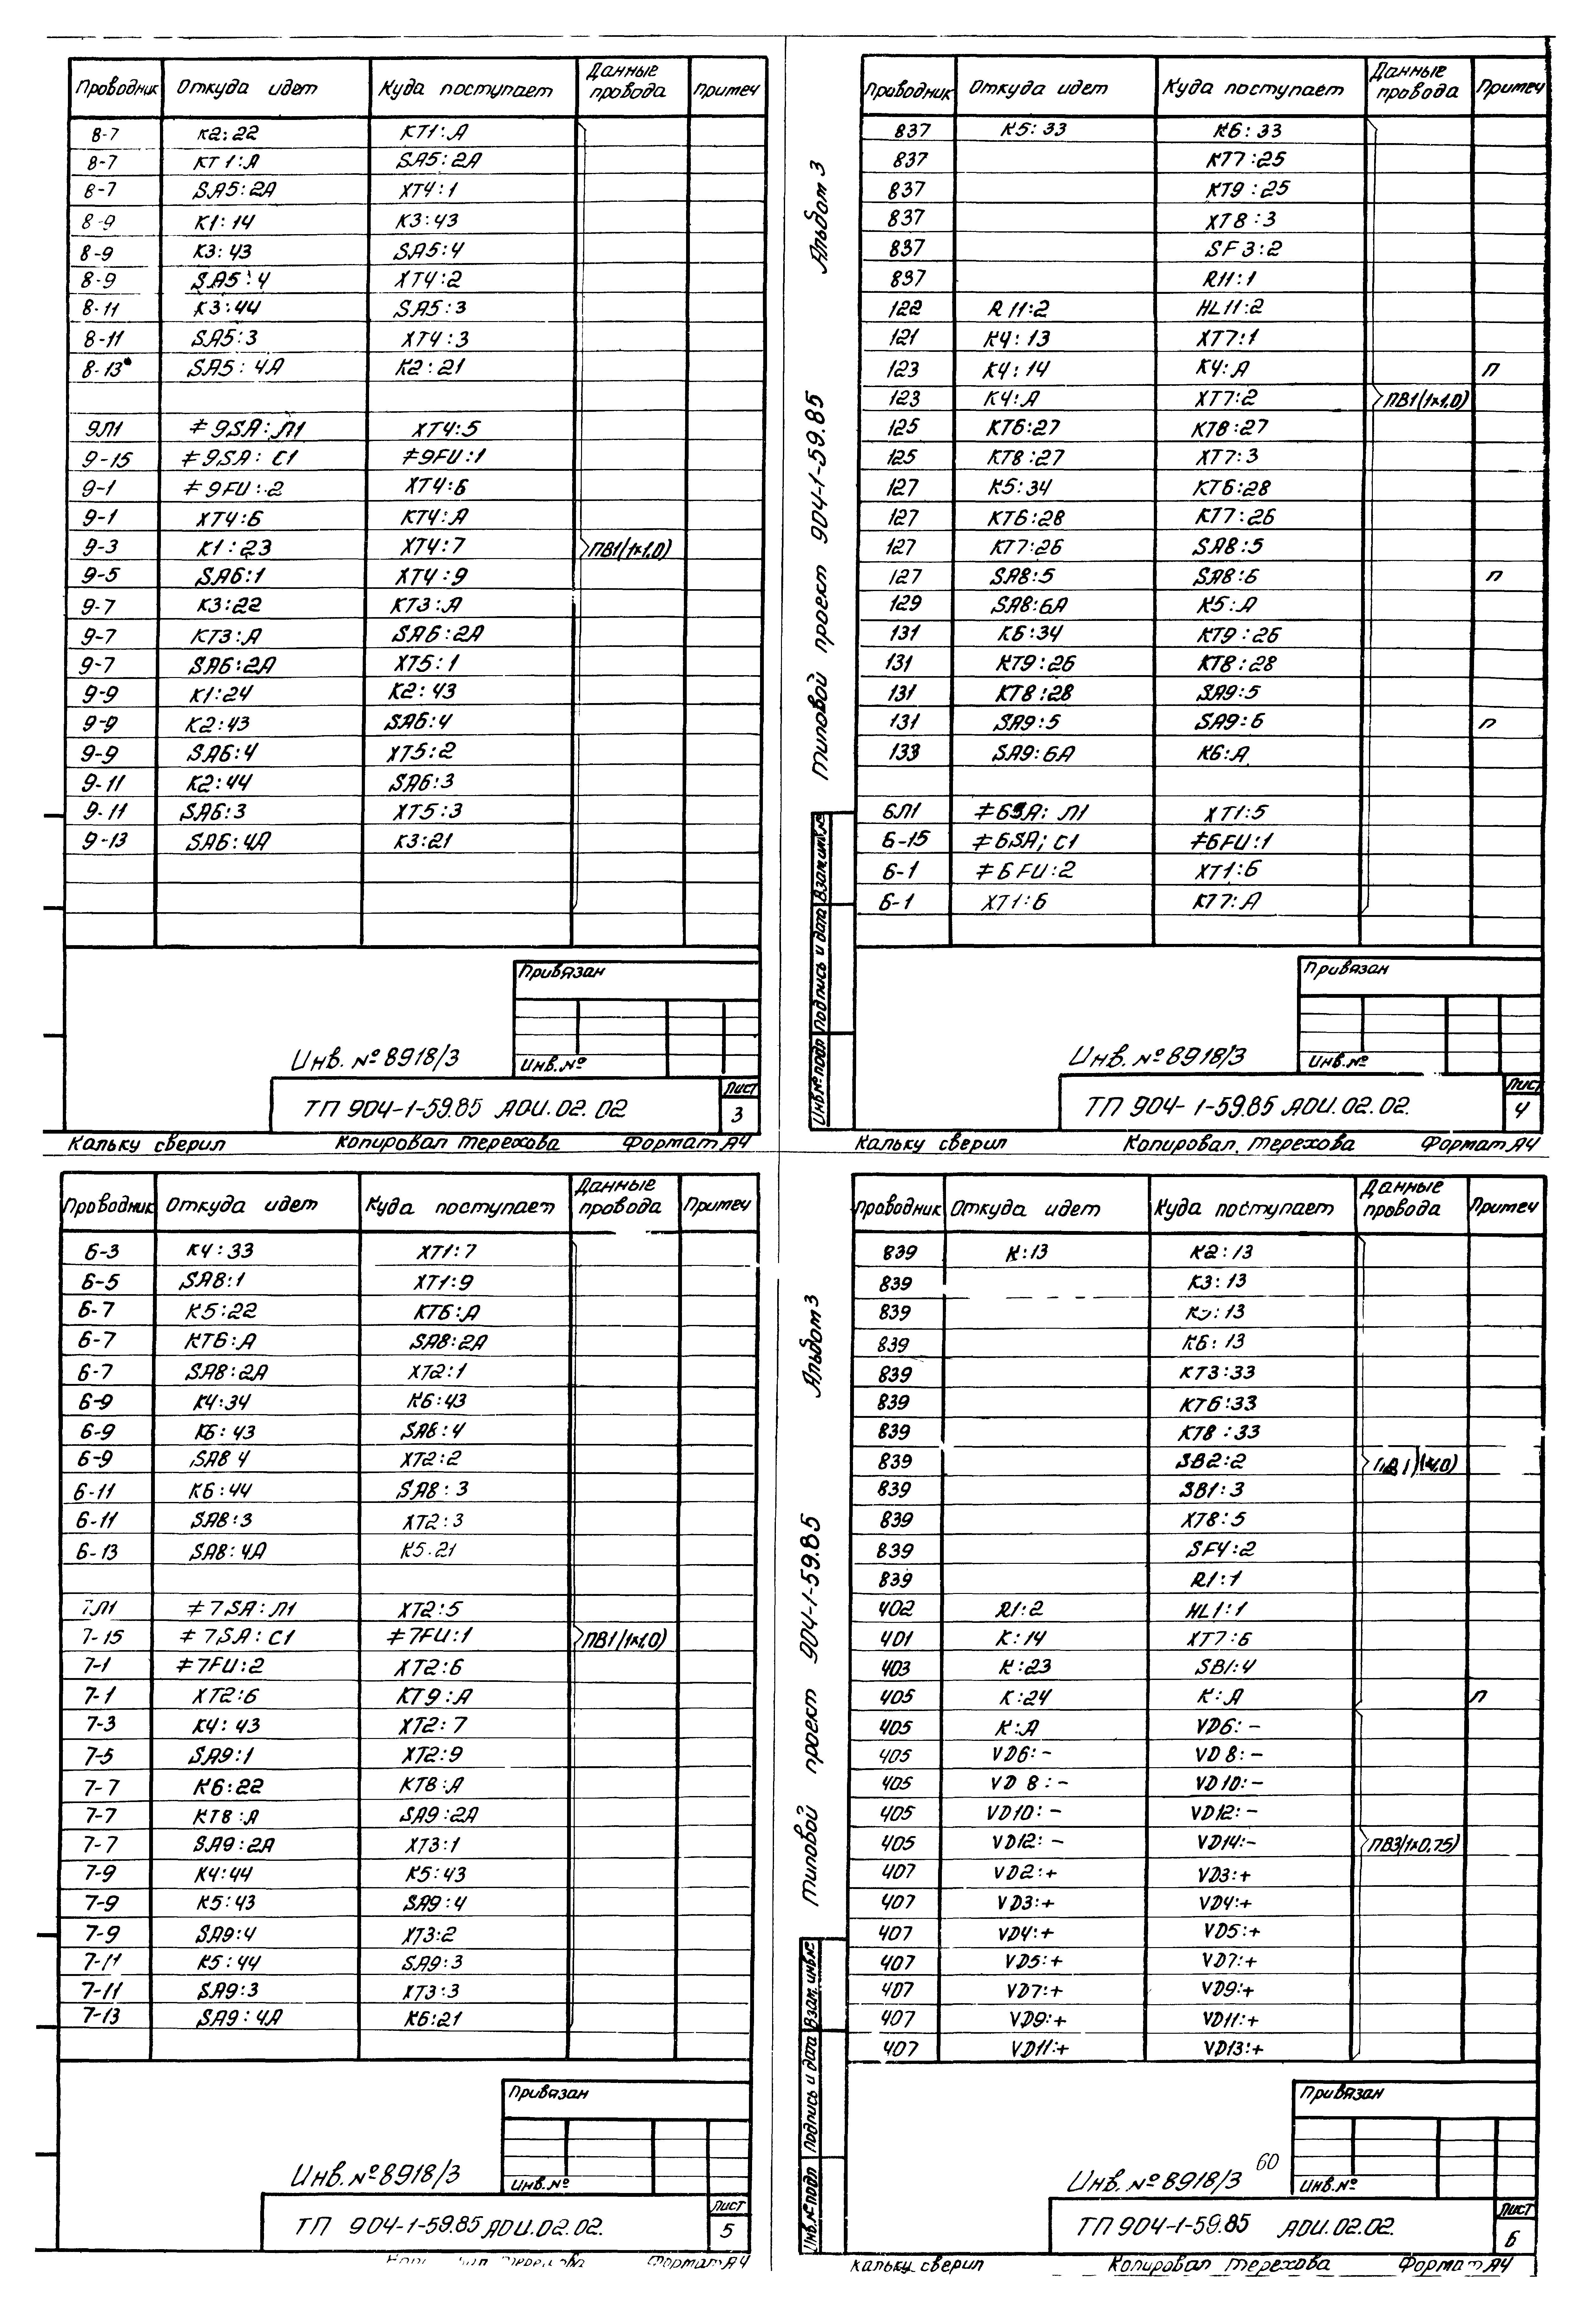 Проводник Откуда идет Куда поступает Данные провода Примеч
8-7 К2:22 КТ1:А
8-7 КТ1:А SA5:2А
8-7 SA5:2А ХТ4:1
8-9 К1:14 К3:43
8-9 К3:43 SA5:4
8-9 SA5:4 ХТ4:2
8-11 К3:44 SA5:3
8-11 SA5:3 ХТ4:3
8-13 SA5:4А К2:21
9Л1 ≠9SA:Л1 ХТ4:5
9-15 ≠9SA:С1 ≠9FU:1
9-1 ≠9FU:2 ХТ4:6
9-1 ХТ4:6 КТ4:А
9-3 К1:23 ХТ4:7 ПВ1(1×1,0)
9-5 SA6:1 ХТ4:9
9-7 К3:22 КТ3:А
9-7 КТ3:А SA6:2А
9-7 SA6:2А ХТ5:1
9-9 К1:24 К2:43
9-9 К2:43 SA6:4
9-9 SA6:4 ХТ5:2
9-11 К2:44 SA6:3
9-11 SA6:3 ХТ5:3
9-13 SA6:4А К3:21
Привязан
Инв.№
Инв.№8918/3
ТП 904-1-59.85 АОИ.02.02
Лист
3
Кальку сверил Копировал Терехова Формат А4
Альбом 3
Типовой проект 904-1-59.85
Проводник Откуда идет Куда поступает Данные провода Примеч
837 К5:33 К6:33
837 КТ7:25
837 КТ9:25
837 ХТ8:3
837 SF3:2
837 R11:1
122 R11:2 HL11:2
121 К4:13 ХТ7:1
123 К4:14 К4:А П
123 К4:А ХТ7:2 ПВ1(1×1,0)
125 КТ6:27 КТ8:27
125 КТ8:27 ХТ7:3
127 К5:34 КТ6:28
127 КТ6:28 КТ7:26
127 КТ7:26 SA8:5
127 SA8:5 SA8:6 П
129 SA8:6А К5:А
131 К6:34 КТ9:26
131 КТ9:26 КТ8:28
131 КТ8:28 SA9:5
131 SA9:5 SA9:6 П
133 SA9:6А К6:А
6Л1 ≠6SA:Л1 ХТ1:5
6-15 ≠6SA;С1 ≠6FU:1
6-1 ≠6FU:2 ХТ1:6
6-1 ХТ1:6 КТ7:А
Взам.инв.№
Подпись и дата
Инв№подл
Привязан
Инв.№
Инв.№8918/3
ТП 904-1-59.85 АОИ.02.02.
Лист
4
Кальку сверил Копировал. Терехова Формат А4
Проводник Откуда идет Куда поступает Данные провода Примеч
6-3 К4:33 ХТ1:7
6-5 SA8:1 ХТ1:9
6-7 К5:22 КТ6:А
6-7 КТ6:А SA8:2А
6-7 SA8:2А ХТ2:1
6-9 К4:34 К6:43
6-9 К6:43 SA8:4
6-9 SA8 4 ХТ2:2
6-11 К6:44 SA8:3
6-11 SA8:3 ХТ2:3
6-13 SA8:4А К5.21
7Л1 ≠7SA:Л1 ХТ2:5
7-15 ≠7SA:С1 ≠7FU:1 ПВ1(1×1,0)
7-1 ≠7FU:2 ХТ2:6
7-1 ХТ2:6 КТ9:А
7-3 К4:43 ХТ2:7
7-5 SA9:1 ХТ2:9
7-7 К6:22 КТ8:А
7-7 КТ8:А SA9:2А
7-7 SA9:2А ХТ3:1
7-9 К4:44 К5:43
7-9 К5:43 SA9:4
7-9 SA9:4 ХТ3:2
7-11 К5:44 SA9:3
7-11 SA9:3 ХТ3:3
7-13 SA9:4А К6:21
Привязан
Инв.№
Инв.№8918/3
ТП 904-1-59.85 АОИ.02.02.
Лист
5
Терехова Формат А4
Альбом 3
Типовой проект 904-1-59.85
Проводник Откуда идет Куда поступает Данные провода Примеч
839 К:13 К2:13
839 К3:13
839 К5:13
839 К6:13
839 КТ3:33
839 КТ6:33
839 КТ8:33
839 SB2:2
839 SB1:3
839 ХТ8:5
839 SF4:2
839 R1:1
402 R1:2 HL1:1
401 К:14 ХТ7:6
403 К:23 SB1:4
405 К:24 К:А П
405 К:А VD6:-
405 VD6:- VD8:-
405 VD8:- VD10:-
405 VD10:- VD12:-
405 VD12:- VD14:- ПВ3(1×0,75)
407 VD2:+ VD3:+
407 VD3:+ VD4:+
407 VD4:+ VD5:+
407 VD5:+ VD7:+
407 VD7:+ VD9:+
407 VD9:+ VD11:+
407 VD11:+ VD13:+
Взам.инв.№
Подпись и дата
Инв.№подл
Привязан
Инв.№
60
Инв.№8918/3
ТП 904-1-59.85 АОИ.02.02.
Лист
6
Кальку сверил Копировал Терехова Формат А4